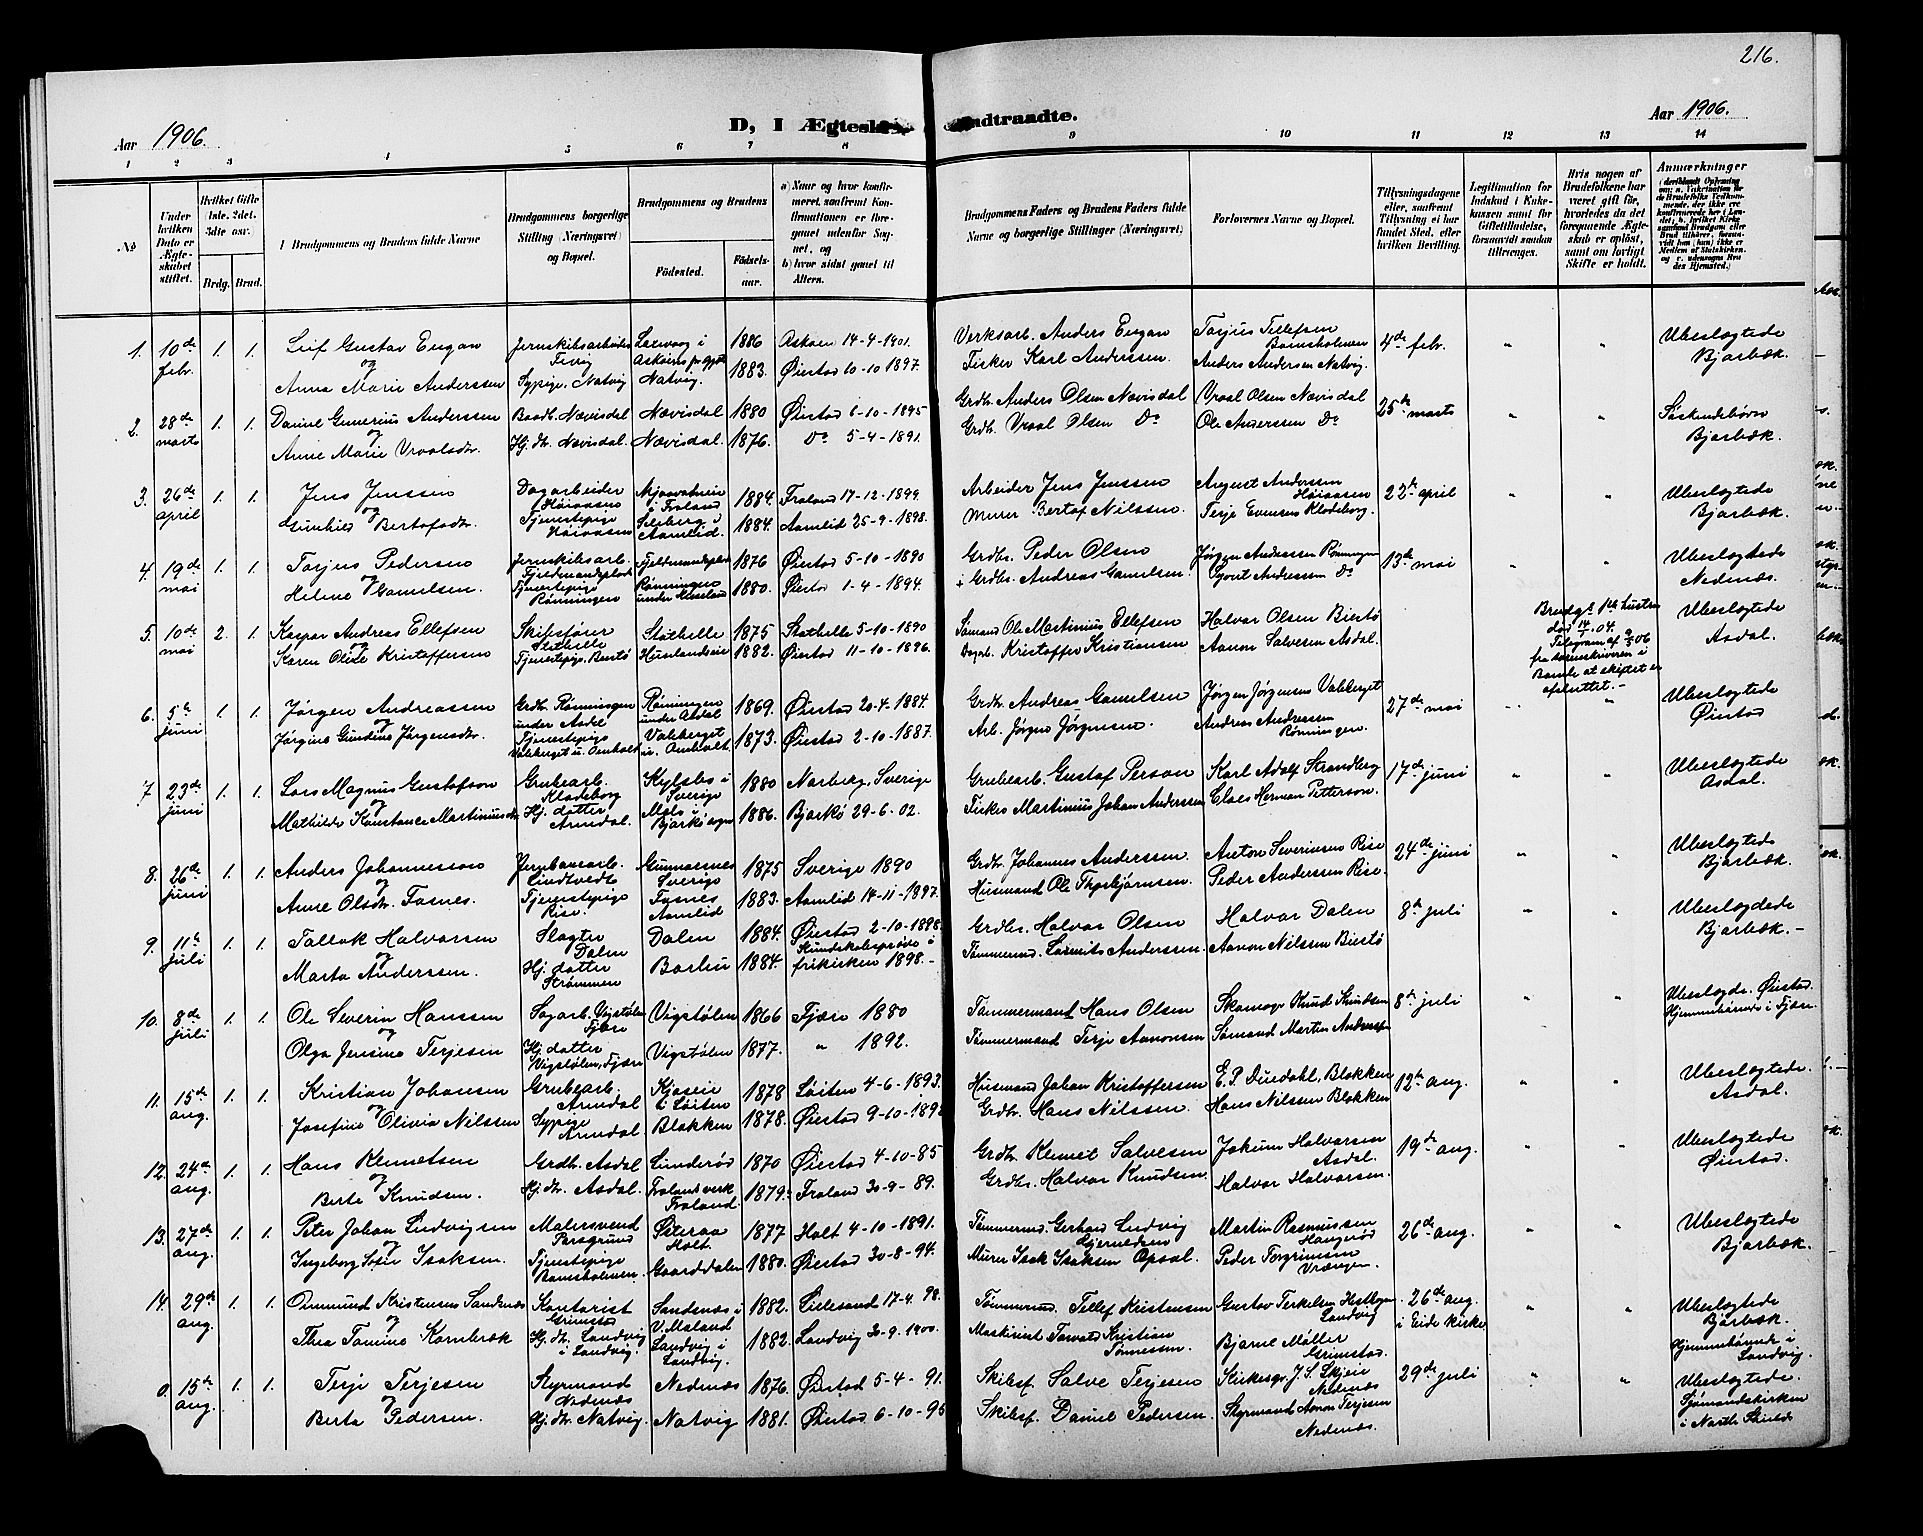 216.
D, I Ægteskab indtraadte.
Aar 1906.
Aar 1906.
1 2 3 4 5 6 7 8 9 10 11 12 13 14
No
Under hvilken Dato er Ægteskabet stiftet.
Hvilket Gifte (1ste, 2det, 3die osv.)
Brdg. Brud.
Brudgommens og Brudens fulde Navne
Brudgommens borgerlige Stilling (Næringsvei) og Bopæl.
Brudgommens og Brudens
Fødested.
Fødselsaar.
a) Naar og hvor konfirmeret, saafremt Konfirmationen er foregaaet udenfor Sognet, og
b) hvor sidst gaaet til Alters.
Brudgommens Faders og Brudens Faders fulde Navne og borgerlige Stillinger (Næringsvei)
Forlovernes Navne og Bopæl.
Tillysningsdagene eller, saafremt Tillysning ei har fundet Sted, efter hvilken Bevilling.
Legitimation for Indskud i Enkekassen samt for Giftetilladelse, forsaavidt saadan tiltrænges.
Hvis nogen af Brudefolkene har været gift før, hvorledes da det foregaaende Ægteskab er opløst, samt om lovligt Skifte er holdt.
Anmærkninger
1. 10de febr. 1. 1. Leif Gustav Engan Jernskibsarbeider Fevig Laxevaag i Askøens prgjd. 1886 Askøen 14-4-1901. Verksarb. Anders Engan Torjus Tellefsen Bamsholmen 4de febr. " " Ubeslægtede Bjorbæk.
og Anna Marie Anderssen Sypige, Natvig Natvig. 1883. Øiestad 10-10 1897. Fisker Karl Anderssen. Anders Andersen Natvig.
2. 28de marts 1. 1. Daniel Gunerius Anderssen Baadb. Nævisdal Nævisdal 1880 Øiestad 6-10-1895 Grdb. Anders Olsen Nævisdal Vraal Olsen Nævisdal 25de marts " " Søskendebørn Bjorbæk.
og Anne Marie Vraalsdtr. Hj. dtr. Nævisdal. Nævisdal. 1876. Do 5-4-1891. Grdb. Vraal Olsen Do Ole Anderssen Do
3. 26de april 1. 1. Jens Jenssen Dagarbeider Høiaasen Mjaavatnein i Froland 1884. Froland 17-12-1899. Arbeider Jens Jenssen August Anderssen Høiaasen 22de april " " Ubeslægtede Bjorbæk.
og Gunhild Bertofsdtr. Tjenestepige Høiaasen Seleberg i Aamlid. 1884. Aamlid 25-9-1898. Murer Bertof Nilssen. Terje Evensen Klodeborg.
4. 19de mai 1. 1. Torjus Pedersen Jernskibsarb. 1876 Øiestad 5-10-1890 Grdbr. Peder Olsen Jørgen Andreassen Rønningen 13de mai " " Ubeslægtede Nedenæs.
og Helene Gamelsen. Tjenestepige Rønningen Rønningen under 1880. Øiestad 1-4-1894. Grdbr. Andreas Gamelsen. Syvert Andreassen Do
5. 10de mai 2. 1. Kaspar Andreas Ellefsen Skibsfører Stathelle Stathelle 1875 Stathelle 5-10-1890 Sømand Ole Martinius Ellefsen Halvor Olsen Biestø Brudg.s 1ste hustru død 14/1 04. Telegram af 9/5 06 fra sorenskriveren i Bamle at skiftet er afsluttet.- Ubeslægtede Asdal.
og Karen Olide Kristoffersen Tjenestepige, Biestø 1882. Øiestad 11-10-1896. Dagarb. Kristoffer Kristiansen Aanon Salvesen Asdal.
6. 5te juni 1. 1. Jørgen Andreassen Grdb. Rønningen under Asdal Rønningen under Asdal 1869. Øiestad 20-4-1884. Grdb. Andreas Gamelsen Jørgen Jørgensen Valeberget 27de mai " " Ubeslægtede Øiestad
og Jørgine Gundine Jørgensdtr. Tjenestepige Valeberget u. Omholt Valeberget u. Omholt. 1873. Øiestad 2-10-1887. Arb. Jørgen Jørgensen. Andreas Andreassen Rønningen.
7 23de juni 1. 1. Lars Magnus Gustafson Grubearb. Klodeborg i Sverige 1880 Narberg, Sverige Grubearb. Gustaf Person Karl Adolf Strandberg 17de juni " " Ubeslægtede Asdal.
og Mathilde Konstance Martiniusdtr. Hj. datter Arendal. Bjarkø sogn 1886. Bjarkø 29-6.02. Fisker Martinius Johan Anderssen Claes Herman Petterson.
8. 26de juni 1. 1. Anders Johannesson Jernbanearb. Lindtvedt Gunnarsnes Sverige 1875 Sverige 1890 Grdb. Johannes Anderssen. Anton Severinsen Rise 24de juni " " Ubeslægtede Bjorbæk.
og Anne Olsdtr. Fosnes. Tjenestepige Rise. Fosnes Aamlid 1883. Aamlid 14-11-1897. Husmand Ole Thorbjørnsen. Peder Anderssen Rise.
9. 11te juli 1. 1. Tallak Halvorsen Slagter Dalen Dalen 1884. Øiestad 2-10-1898. Grdbr. Halvor Olsen Halvor Dalen 8de juli " " Ubeslægtede Bjorbæk.-
og Marta Anderssen. Hj. datter Strømmen Borliu 1884. Kundskabsprøve i frikirken 1898.- Tømmermd. Anderssen. Aanon Nilssen Biestø
10. 8de juli 1. 1. Ole Severin Hanssen Sagarb. Vigstølen Fjære Vigstølen 1866 Fjære 1880 Tømmermand Hans Olsen Skomagr. Knud Knudsen 8de juli " " Ubeslægtde. Øiestad. Hjemmehørende i Fjære.
og Olga Jensine Terjesen Hj. datter Vigstølen, Fjære Vigstølen 1877. " 1892. Tømmermand Terje Aanonsen Sømand Martin Anderssen
11. 15de aug. 1. 1. Kristian Johansen Grubearb. Arendal i Løiten 1878 Løiten 4-6-1893. Husmand Johan Kristoffersen E. P. Duedahl, Blakken 12te aug. " " Ubeslægtede. Asdal.
og Josefine Olivia Nilssen Sypige Arendal Blakken 1878. Øiestad 9-10-1892 Grdbr. Hans Nilssen. Hans Nilssen Blakken
12. 24de aug. 1. 1. Hans Klemetsen Grdb. Asdal Lunderød 1870 Øiestad 4-10-85 Grdb. Klemet Salvesen Jokum Halvorsen Asdal. 19de aug. " " Ubeslægtede Øiestad.
og Berte Knudsen. Hj. dtr. Asdal. Frolands verk Froland. 1879. Froland 30-9-89. Grdbr. Halvor Knudsen Halvor Halvorsen.
13. 27de aug. 1. 1. Peter Johan Ludvigsen Malersvend Porsgrund Østeraa Holt. 1877 Holt 4-10-1891. Tømmermd. Gerhard Ludvig Martin Rasmussen Haugerød 26de aug. " " Ubeslægtede Bjorbæk.
og Ingeborg Sofie Isaksen. Tjenestepige Bamsholmen. Gaarddalen 1880. Øiestad 30-8-94. Murer Isak Isaksen Opsal. Peder Torgrimsen Vrængen.
14. 29de aug. 1. 1. Ommund Kristensen Sandnæs Kontorist Grimstad Sandnæs i V. Moland 1882. Lillesand 17-4. 98. Tømmermd. Tellef Kristensen Gustav Terkelsen Landvig 26de aug. i Eide kirke " " Ubeslægtede Bjorbæk. Hjemmehørende i Landvig.
og Thea Tomine Kornbræk Hj. dtr. Landvig i Landvig. Landvig i Landvig. 1882. Landvig 30-9-1900. Maskinist Torvald Kristian Tønnessen. Bjarne Møller Grimstad.
0. 15de aug. 1. 1. Terje Terjesen Styrmand Nedenæs Nedenæs 1876. Øiestad 5-4-91. Skibsf. Salve Terjesen Kirkesgr. J. S. Skjeie Nedenæs 29de juli " " Ubeslægtede. Sjømandskirken i North Shields
Berta Pedersen. Hj. dtr. Natvig. Natvig 1881. Øiestad 6-10-95 Skibsf. Daniel Pedersen. Styrmand Aanon Terjesen Nedenæs.